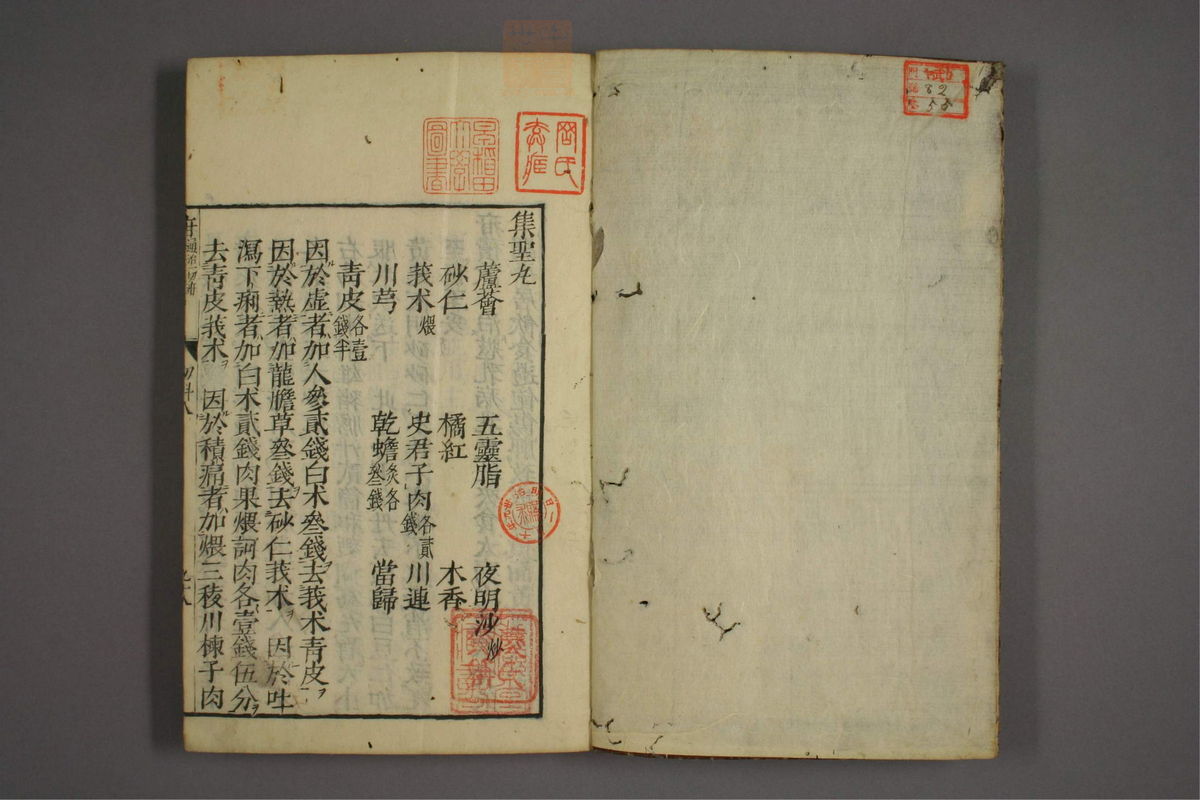 集聖丸
蘆薈 五靈脂 夜明沙炒
砂仁 橘紅 木香
莪朮煨 史君子肉各貳錢 川連
川芎 乾蟾炙各叄錢 當歸
青皮各壹錢半
因於虛者加人參貳錢白朮叄錢去莪朮青皮ヲ
因於熱者加龍膽草叄錢去砂仁莪朮ヲ 因於吐
瀉下痢者加白朮貳錢肉果煨訶肉各壹錢伍分ヲ
去青皮莪朮ヲ 因於積痛者加煨三稜川楝子肉
早稲田大學圖書
82
58